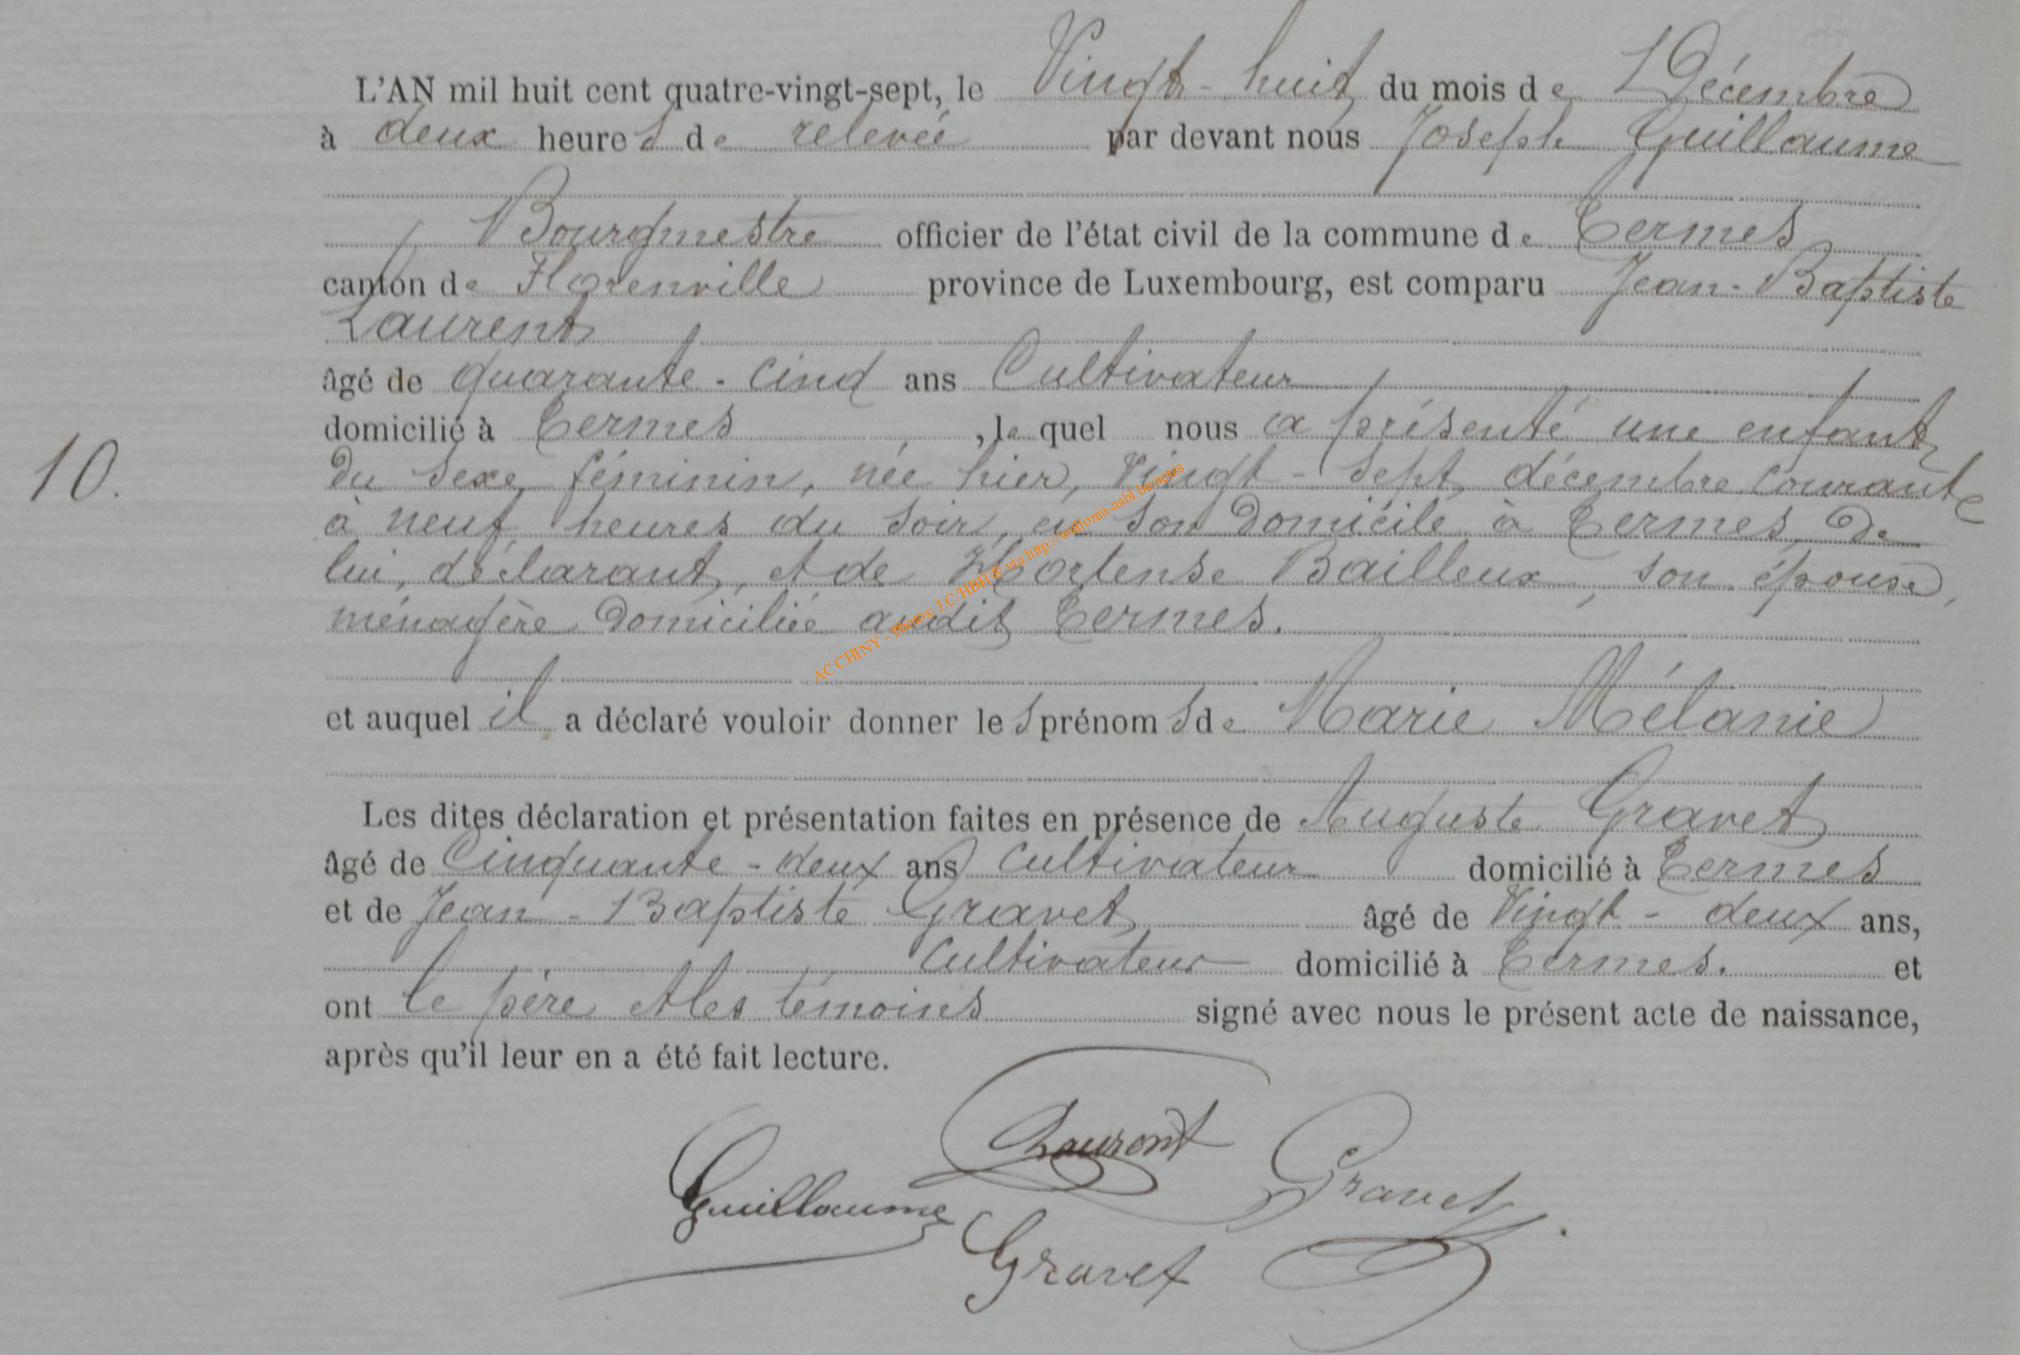 L'AN mil huit cent quatre-vingt-sept, le Vingt-huit du mois de Décembre
à deux heures de relevée par devant nous Joseph Guillaume
Bourgmestre officier de l'état civil de la commune de Termes
canton de Florenville province de Luxembourg, est comparu Jean-Baptiste
Laurent
âgé de quarante-cinq ans Cultivateur
domicilié à Termes, lequel nous a présenté une enfant
10.
du sexe féminin, née hier, vingt-sept décembre courant
à neuf heures du soir, en son domicile à Termes, de
lui, déclarant, et de Hortense Bailleux, son épouse,
ménagère domiciliée audit Termes.
AC CHINY - via http://wallonia-asbl.be/actes
et auquel il a déclaré vouloir donner les prénoms de Marie Mélanie
Les dites déclaration et présentation faites en présence de Auguste Gravet
âgé de Cinquante-deux ans cultivateur domicilié à Termes
et de Jean-Baptiste Gravet âgé de Vingt-deux ans,
cultivateur domicilié à Termes. et
ont le père et les témoins signé avec nous le présent acte de naissance,
après qu'il leur en a été fait lecture.
Laurent
Guillaume
Gravet
Gravet